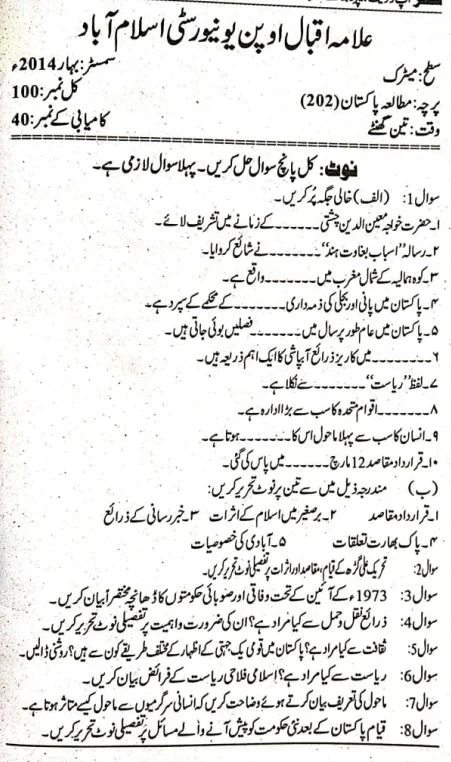 علامہ اقبال اوپن یونیورسٹی اسلام آباد
سطح: میٹرک سمسٹر: بہار 2014ء
پرچہ: مطالعہ پاکستان (202) کل نمبر: 100
وقت: تین گھنٹے کامیابی کے نمبر: 40
نوٹ: کل پانچ سوال حل کریں۔ پہلا سوال لازمی ہے۔
سوال 1: (الف) خالی جگہ پُر کریں۔
۱۔ حضرت خواجہ معین الدین چشتی ------ کے زمانے میں تشریف لائے۔
۲۔ رسالہ "اسباب بغاوت ہند" ------- نے شائع کروایا۔
۳۔ کوہ ہمالیہ کے شمال مغرب میں ------- واقع ہے۔
۴۔ پاکستان میں پانی اور بجلی کی ذمہ داری ------- کے محکمے کے سپرد ہے۔
۵۔ پاکستان میں عام طور پر سال میں ------- فصلیں بوئی جاتی ہیں۔
۶۔ ------- میں کاریز ذرائع آبپاشی کا ایک اہم ذریعہ ہیں۔
۷۔ لفظ "ریاست" ------- سے نکلا ہے۔
۸۔ ------- اقوام متحدہ کا سب سے بڑا ادارہ ہے۔
۹۔ انسان کا سب سے پہلا ماحول اس کا ------- ہوتا ہے۔
۱۰۔ قرارداد مقاصد 12 مارچ ------ میں پاس کی گئی۔
(ب) مندرجہ ذیل میں سے تین پر نوٹ تحریر کریں:
۱۔ قرارداد مقاصد ۲۔ برصغیر میں اسلام کے اثرات ۳۔ خبر رسانی کے ذرائع
۴۔ پاک بھارت تعلقات ۵۔ آبادی کی خصوصیات
سوال 2: تحریک علی گڑھ کے قیام، مقاصد اور اثرات پر تفصیلی نوٹ تحریر کریں۔
سوال 3: 1973ء کے آئین کے تحت وفاقی اور صوبائی حکومتوں کا ڈھانچہ مختصراً بیان کریں۔
سوال 4: ذرائع نقل و حمل سے کیا مراد ہے؟ ان کی ضرورت و اہمیت پر تفصیلی نوٹ تحریر کریں۔
سوال 5: ثقافت سے کیا مراد ہے؟ پاکستان میں قومی یک جہتی کے اظہار کے مختلف طریقے کون سے ہیں؟ روشنی ڈالیں۔
سوال 6: ریاست سے کیا مراد ہے؟ اسلامی فلاحی ریاست کے فرائض بیان کریں۔
سوال 7: ماحول کی تعریف بیان کرتے ہوئے وضاحت کریں کہ انسانی سرگرمیوں سے ماحول کیسے متاثر ہوتا ہے۔
سوال 8: قیام پاکستان کے بعد نئی حکومت کو پیش آنے والے مسائل پر تفصیلی نوٹ تحریر کریں۔